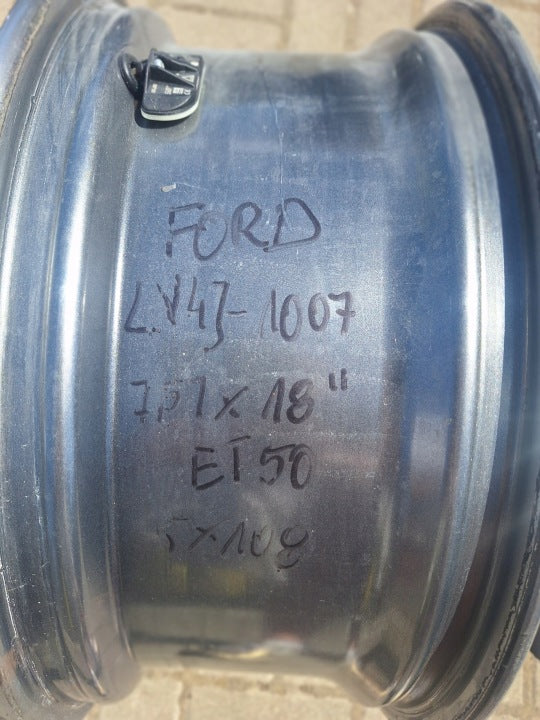 FORD
LV4J-1007
7,5Jx18"
ET50
5x108